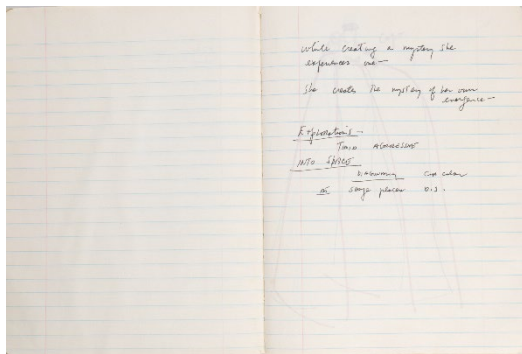 while creating a mystery she
experiences one —
She creates the mystery of her own
emergence —
Explorations —
Timid AGGRESSIVE
INTO SPACE
in strange places